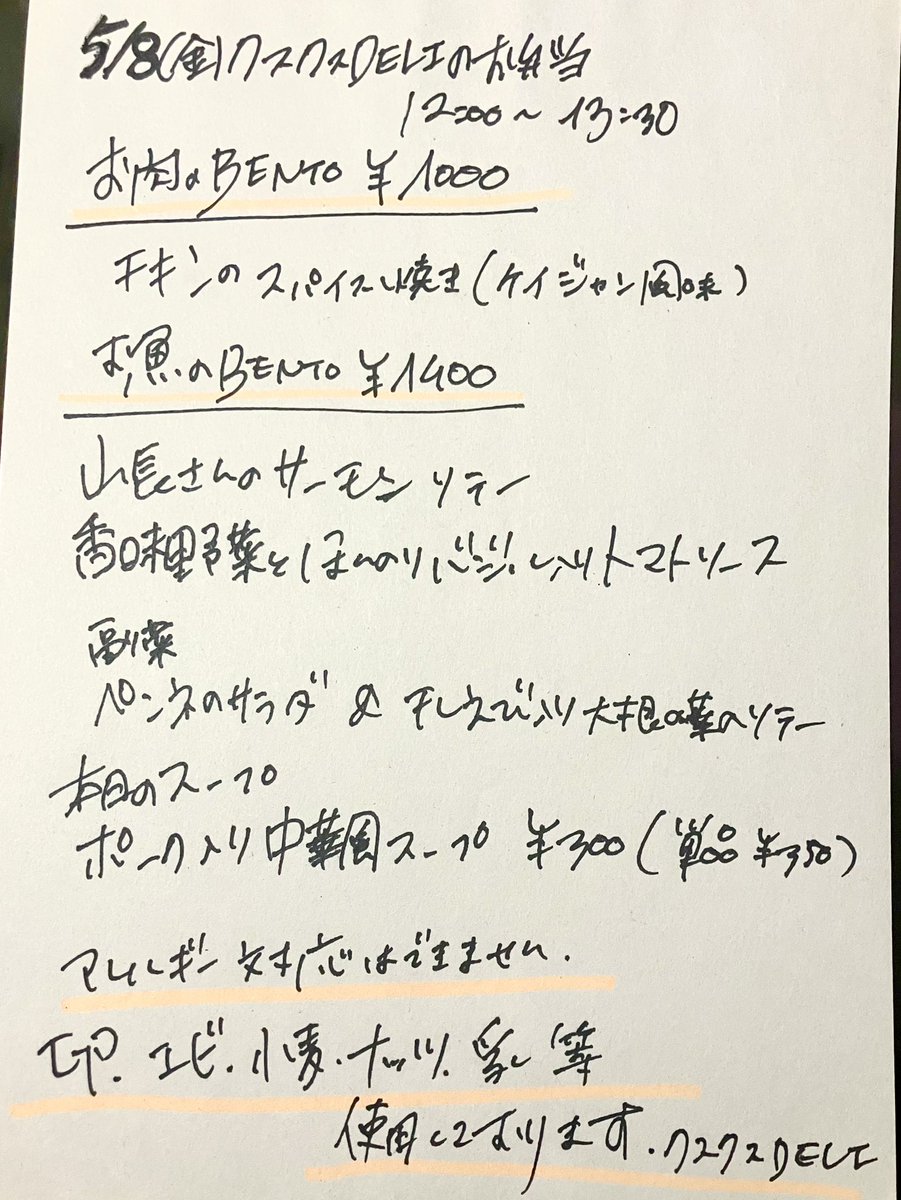 5/8(金)クスクスDELIのお弁当
12:00~13:30
お肉のBENTO ¥1000
チキンのスパイス焼き(ケイジャン風味)
お魚のBENTO ¥1400
山長さんのサーモンソテー
香味野菜とほんのりバジル入りトマトソース
副菜
ペンネのサラダ & 干しエビ入り大根の葉のソテー
本日のスープ
ポーク入り中華風スープ ¥300(単品¥350)
アレルギー対応はできません.
卵.エビ.小麦.ナッツ.乳等
使用しております.クスクスDELI